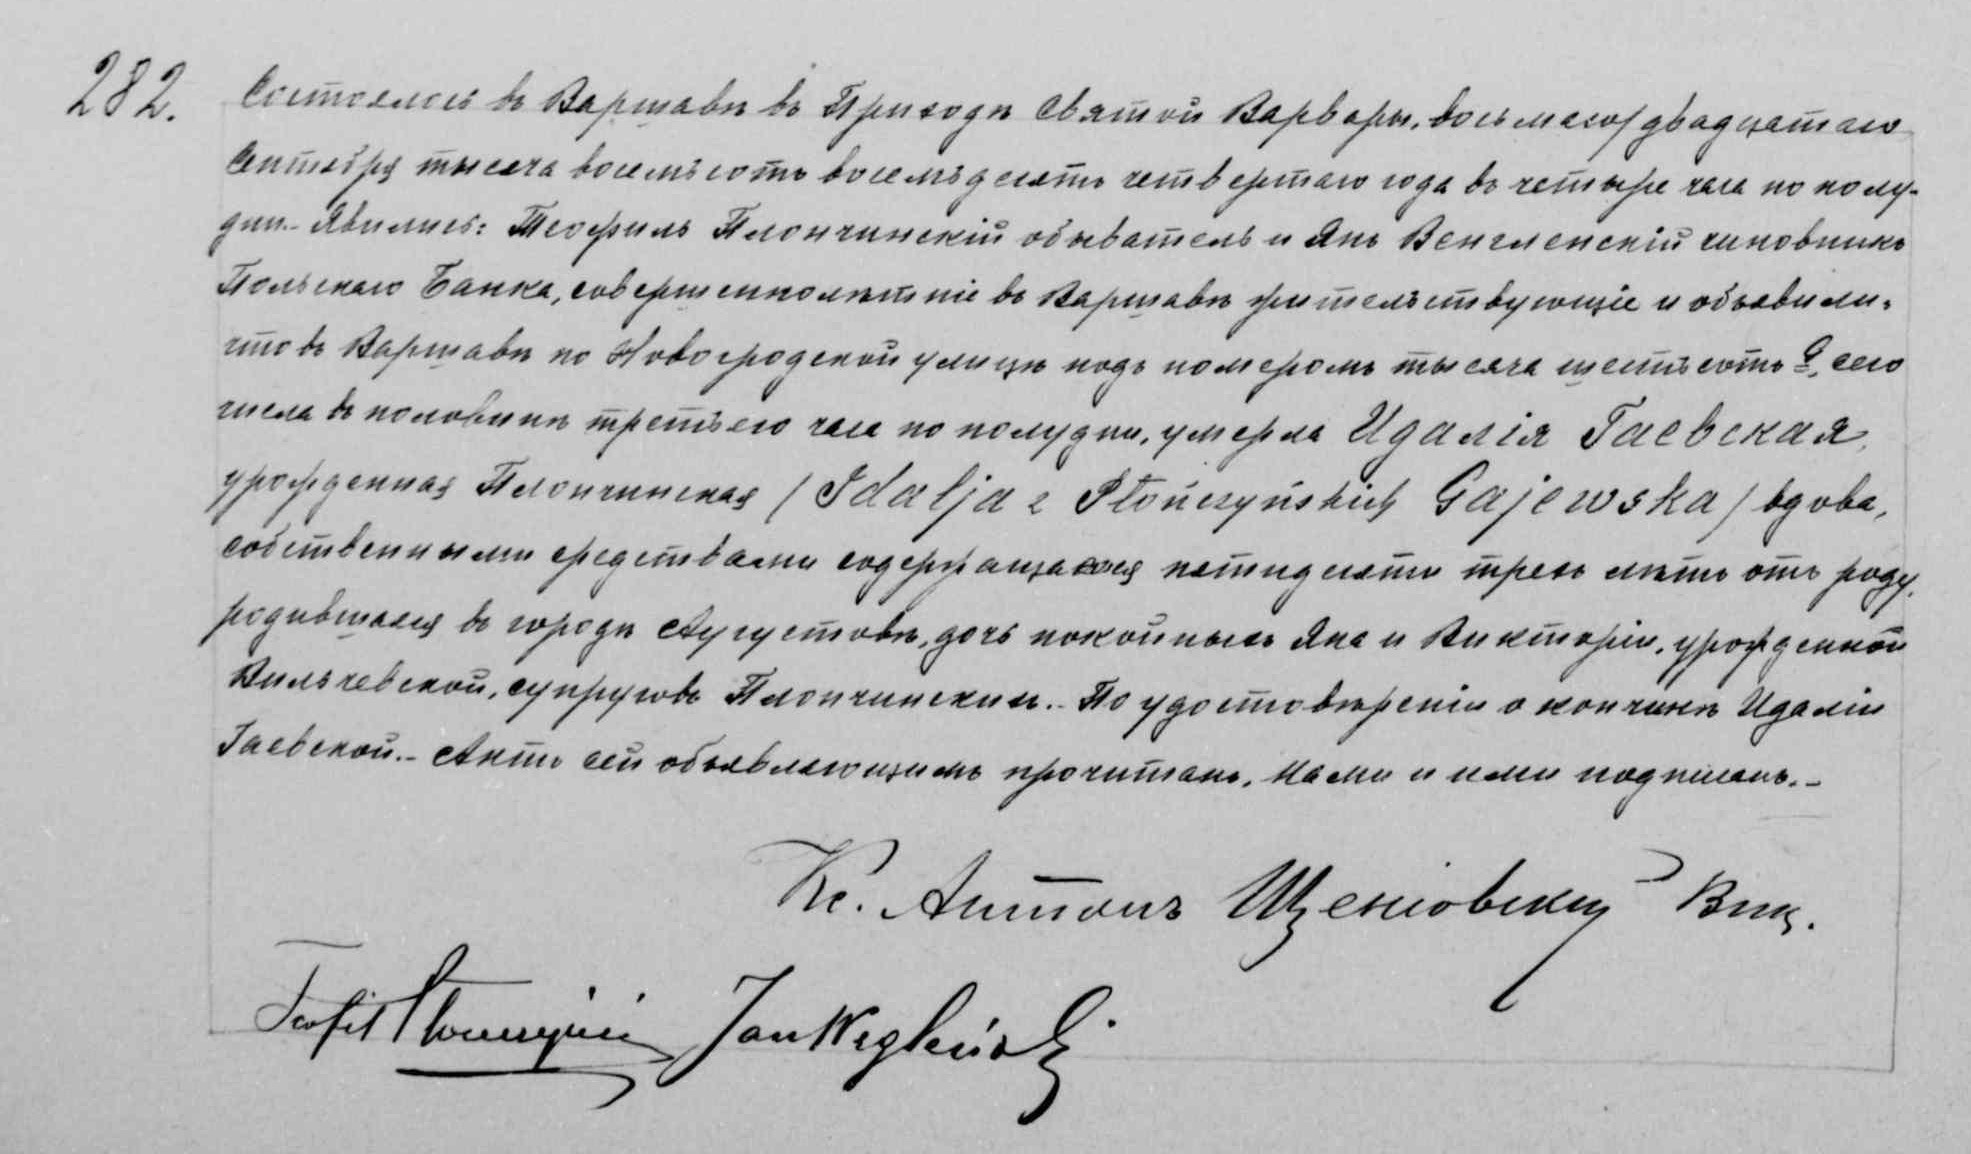 282.
Состоялось въ Варшавѣ въ Приходѣ Святой Варвары, восьмаго/двадцатаго
Сентября тысяча восемьсотъ восемьдесятъ четвертаго года въ четыре часа по полу-
дни.- Явились: Теофилъ Плончинскій обыватель и Янъ Венгленскій чиновникъ
Польскаго Банка, совершеннолѣтніе въ Варшавѣ жительствующіе и объявили,
что въ Варшавѣ по Новогродской улицѣ подъ номеромъ тысяча шестьсотъ G, сего
числа въ половинѣ третьяго часа по полудни, умерла Идалія Гаевская,
урожденная Плончинская /Idalja z Płończyńskich Gajewska/ вдова,
собственными средствами содержащаяся пятидесяти трехъ лѣтъ отъ роду,
родившаяся въ городѣ Аугустовѣ, дочь покойныхъ Яна и Викторіи, урожденной
Вильчевской, супруговъ Плончинскихъ.- По удостовѣреніи о кончинѣ Идаліи
Гаевской.- Актъ сей объявляющимъ прочитанъ, Нами и ими подписанъ.-
Кс. Антонъ Вик.
Teofil Płończyński Jan Węgleński